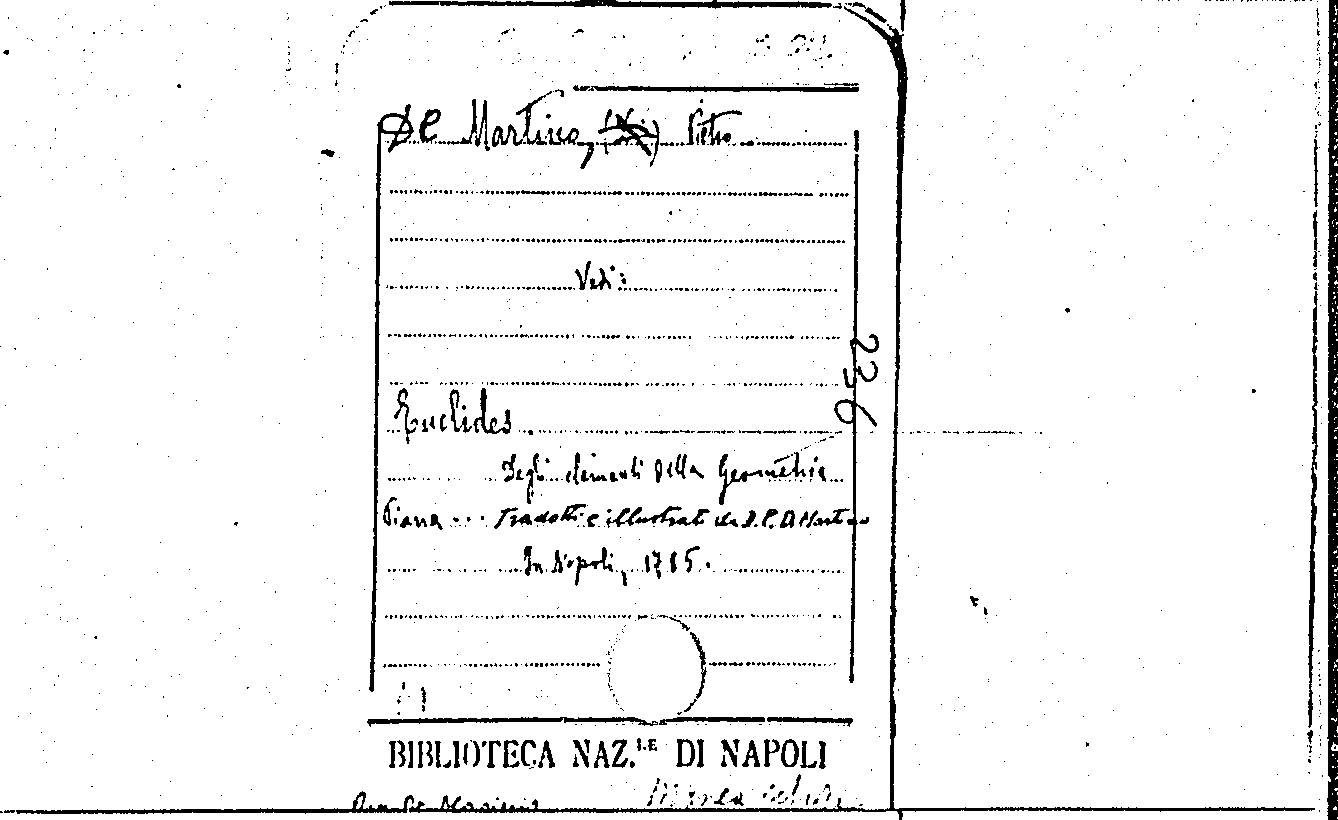 De Martino, Pietro.
Vedi:
236
Euclides.
Degli elementi della Geometria
Piana... Tradotti e illustrati da D. P. Di Martino
In Napoli, 1785.
BIBLIOTECA NAZ.LE DI NAPOLI